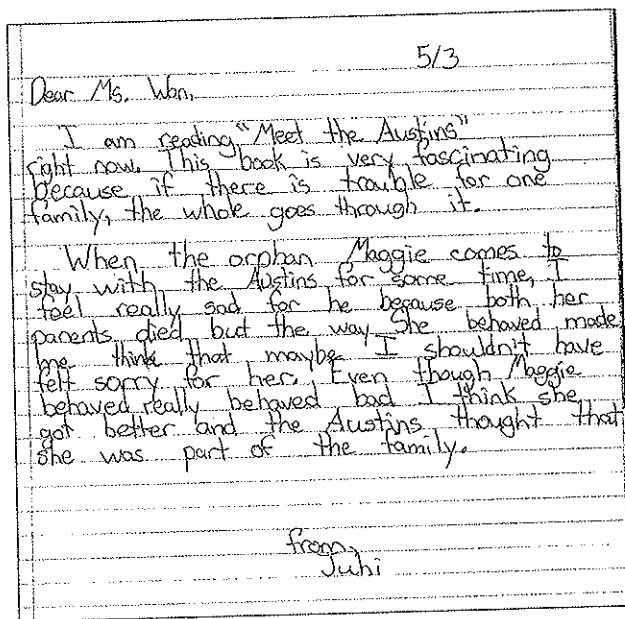 5/3
Dear Ms. Wan,
I am reading "Meet the Austins"
right now. This book is very fascinating
because if there is trouble for one
family, the whole goes through it.
When the orphan Maggie comes to
stay with the Austins for some time, I
feel really sad for he because both her
parents died but the way she behaved made
me think that maybe I shouldn't have
felt sorry for her. Even though Maggie
behaved really behaved bad I think she
got better and the Austins thought that
she was part of the family.
from,
Juhi